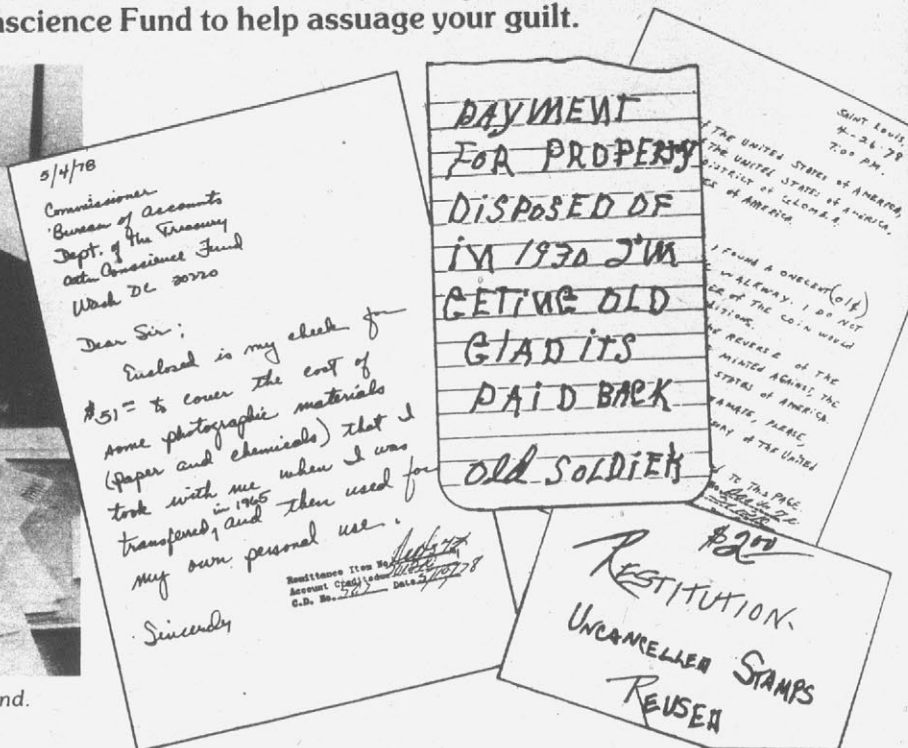 nscience Fund to help assuage your guilt.
5/4/78
Commissioner
Bureau of Accounts
Dept. of the Treasury
attn Conscience Fund
Wash DC 20220
Dear Sir;
Enclosed is my check for
$51= to cover the cost of
some photographic materials
(paper and chemicals) that I
took with me when I was
transferred, in 1965 and then used for
my own personal use.
Sincerely
Remittance Item No.
Account Credited
C.D. No. Date
PAYMENT
FOR PROPERTY
DISPOSED OF
iN 1930 I'M
GETiNG OLD
GlAD iTS
PAiD BACK
Old SOLDiER
SAINT LOUIS,
4-26-78
7:00 PM.
THE UNITED STATES OF AMERICA,
THE UNITED STATES OF AMERICA,
DISTRICT OF
OF AMERICA.
FOUND A ONECENT (01¢)
WALKWAY. I DO NOT
OF THE COIN WOULD
THE REVERSE OF THE
MINTED AGAINST, THE
STATES OF AMERICA.
PLEASE,
OF THE UNITED
TO THIS PAGE
$2.00
RESTITUTION.
UNCANCELLED STAMPS
REUSED
nd.